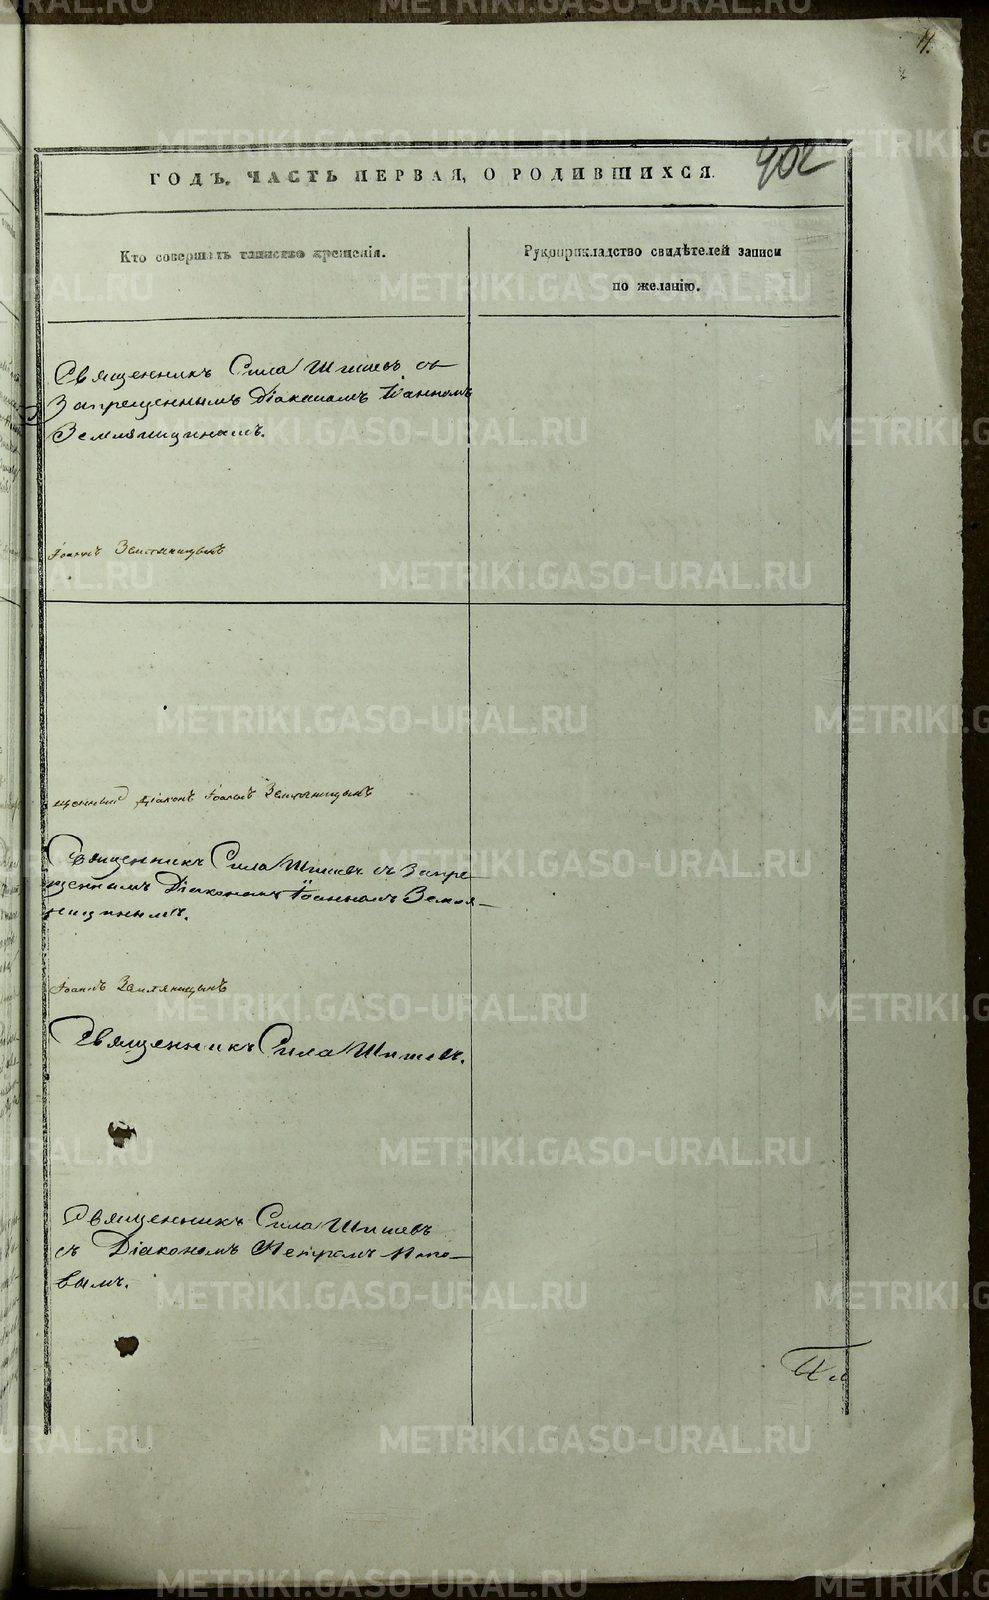 4.
402
ГОДЪ. ЧАСТЬ ПЕРВАЯ, О РОДИВШИХСЯ.
Кто совершалъ таинство крещенія.
Рукоприкладство свидѣтелей записи
по желанію.
Священникъ Сила Шишевъ съ
Запрещеннымъ Діакономъ Іоанномъ
Земляницинымъ.
Іоаннъ Земляницынъ
щенный Діаконъ Іоаннъ Земляницынъ
Священникъ Сила Шишевъ съ Запре-
щеннымъ Діакономъ Іоанномъ Земля-
ницынымъ.
Іоаннъ Земляницынъ
Священникъ Сила Шишевъ.
Священникъ Сила Шишевъ
съ Діакономъ Петромъ
вымъ.
METRIKI.GASO-URAL.RU